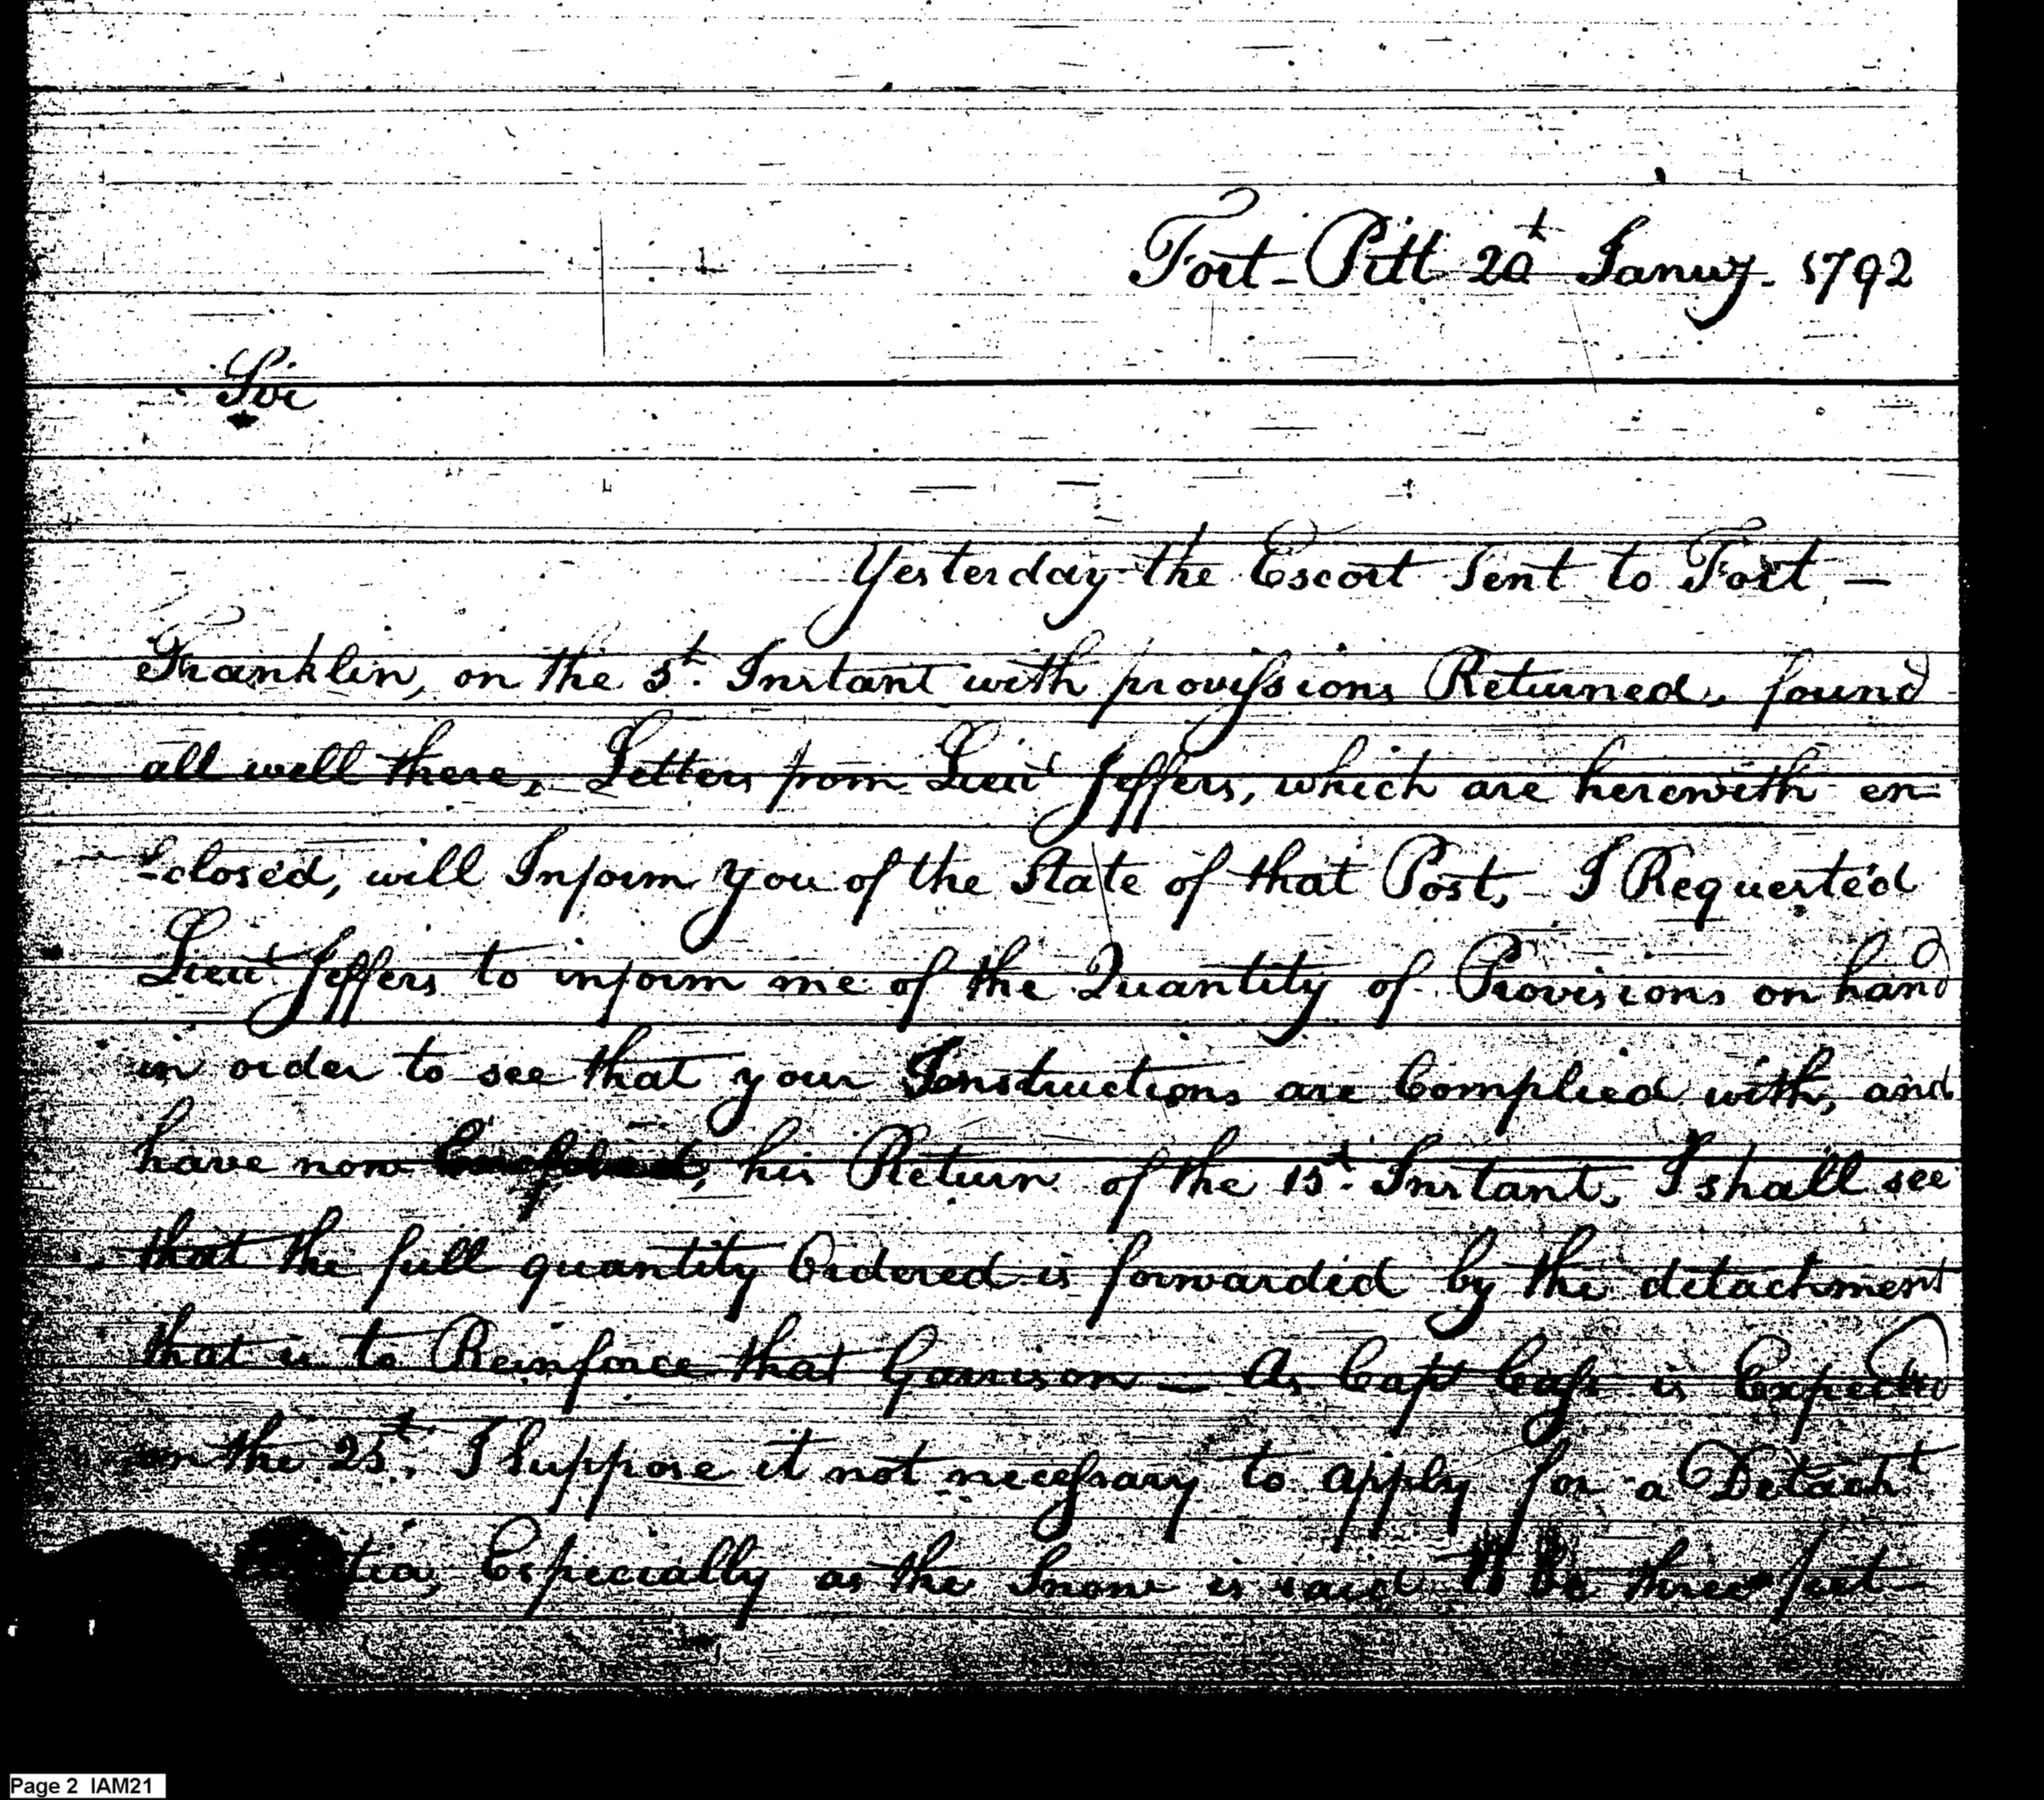 Fort-Pitt 20th Janury. 1792
Sir
Yesterday the Escort Sent to Fort —
Franklin, on the 5th. Instant with provissions Returned, found
all well there, Letters from Lieut Jeffers, which are herewith en-
closed, will Inform you of the State of that Post, I Requested
Lieut Jeffers to inform me of the Quantity of Provisions on hand
in order to see that your Instructions are Complied with, and
have now his Return of the 15th. Instant, I shall see
that the full quantity Ordered is forwarded by the detachment
that is to Reinforce that Garrison — As Capt Cass is Expected
on the 25th. I Suppose it not necessary to apply for a Detacht
Especially as the Snow is said to be three feet —
Page 2 IAM21